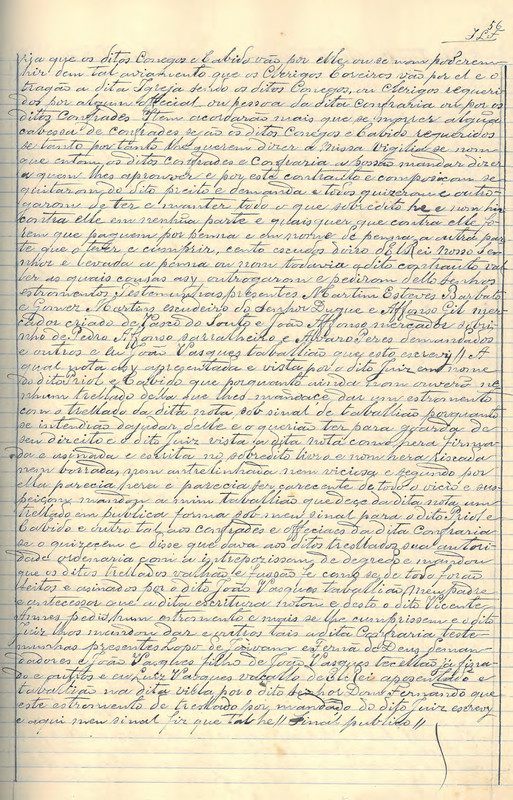 56
viza que os ditos Conegos e Cabido vão por elle, ou se nom poderem
hir dem tal aviamento que os Clerigos Coreiros vão por el e o
tragão a dita Igreja sendo os ditos Conegos, ou Clerigos requeri
dos por algum Official ou pessoa da dita Confraria ou por os
ditos Confrades Item acordarão mais que se morrer algũa
cabessa de Confrades sejão os ditos Conegos e Cabido requeridos
se tanto por tanto lhe querem dizer a Missa Vigilia se nom
que entom os ditos Confrades e Confraria a possão mandar dizer
a quem lhes aprouver e por este contrauto e composiçom se
quitarom do dito preito e demanda e todos quizerom e outro-
garom de ter e manter todo o que sobredito he e nom hir
contra elle em nenhũa parte e quaisquer que contra elle fo-
rem que paguem por penna e em nome de penna a outra par
te que o tever e cumprir, cento escudos douro d'El Rei Nosso Se-
nhor e levada a penna ou nom todavia o dito contrauto val
ler as quais cousas asy outrogarom e pedirom dello senhos
estromentos Testemunhas presentes Martim Esteves Barbato
e Gomes Martins escudeiro do Senhor Duque e Affonso Gil mer-
cador criado de Vasco do Souto e João Affonso mercador sobri-
nho de Pedro Affonso Barralheiro e Alvaro Peres demandados
e outros e eu João Vasques taballião que esto escrevy // A
qual nota asy aprezentada e vista por o dito Juiz em nome
do dito Priol e Cabido que porquanto ainda nom ouverão ne
nhum trellado della que lhes mandace dar um estromento
com o trellado da dita nota, sob sinal de taballião porquanto
se intendião dajudar delle e o querião ter para guarda de
seu direito e o dito Juiz vista a dita nota como hera firmga-
da e asinada e escrita no sobredito livro e nom hera riscada
nem borrada, nem antrelinhada nem viciosa e segundo por
ella parecia hera e parecia ser carecente de todo o vicio e sus
peiçom mandou a mim taballião que deçe da dita nota, um
trellado em publica forma sob meu sinal para o dito Priol e
Cabido e outro tal aos Confrades e Officiaes da dita Confraria
se o quizecem e disse que dava aos ditos trellados sua autori-
dade ordenaria com a intreposissam de degredo e mandou
que os ditos trellados valhão e fassão fe como se de todo forão
feitos e asinados por o dito João Vasques taballião, meu padre
e antecessor que a dita escritura notou e desto o dito Vicente
Annes pedio hum estromento e mais se lhe cumprissem e o dito
Juiz lhos mandou dar e outros tais a dita Confraria teste-
munhas presentes Lopo de e Fernã de Deus deman-
dadores e João Vasques filho de João Vasques tecellão já fina-
do e outros e eu Luiz Vasques vaçallo de El Rei apozentado e
taballião na dita villa por o dito Senhor Dom Fernando que
este estromento de trellado por mandado do dito Juiz escrevy
e aqui meu sinal fiz que tal he // Sinal publico //